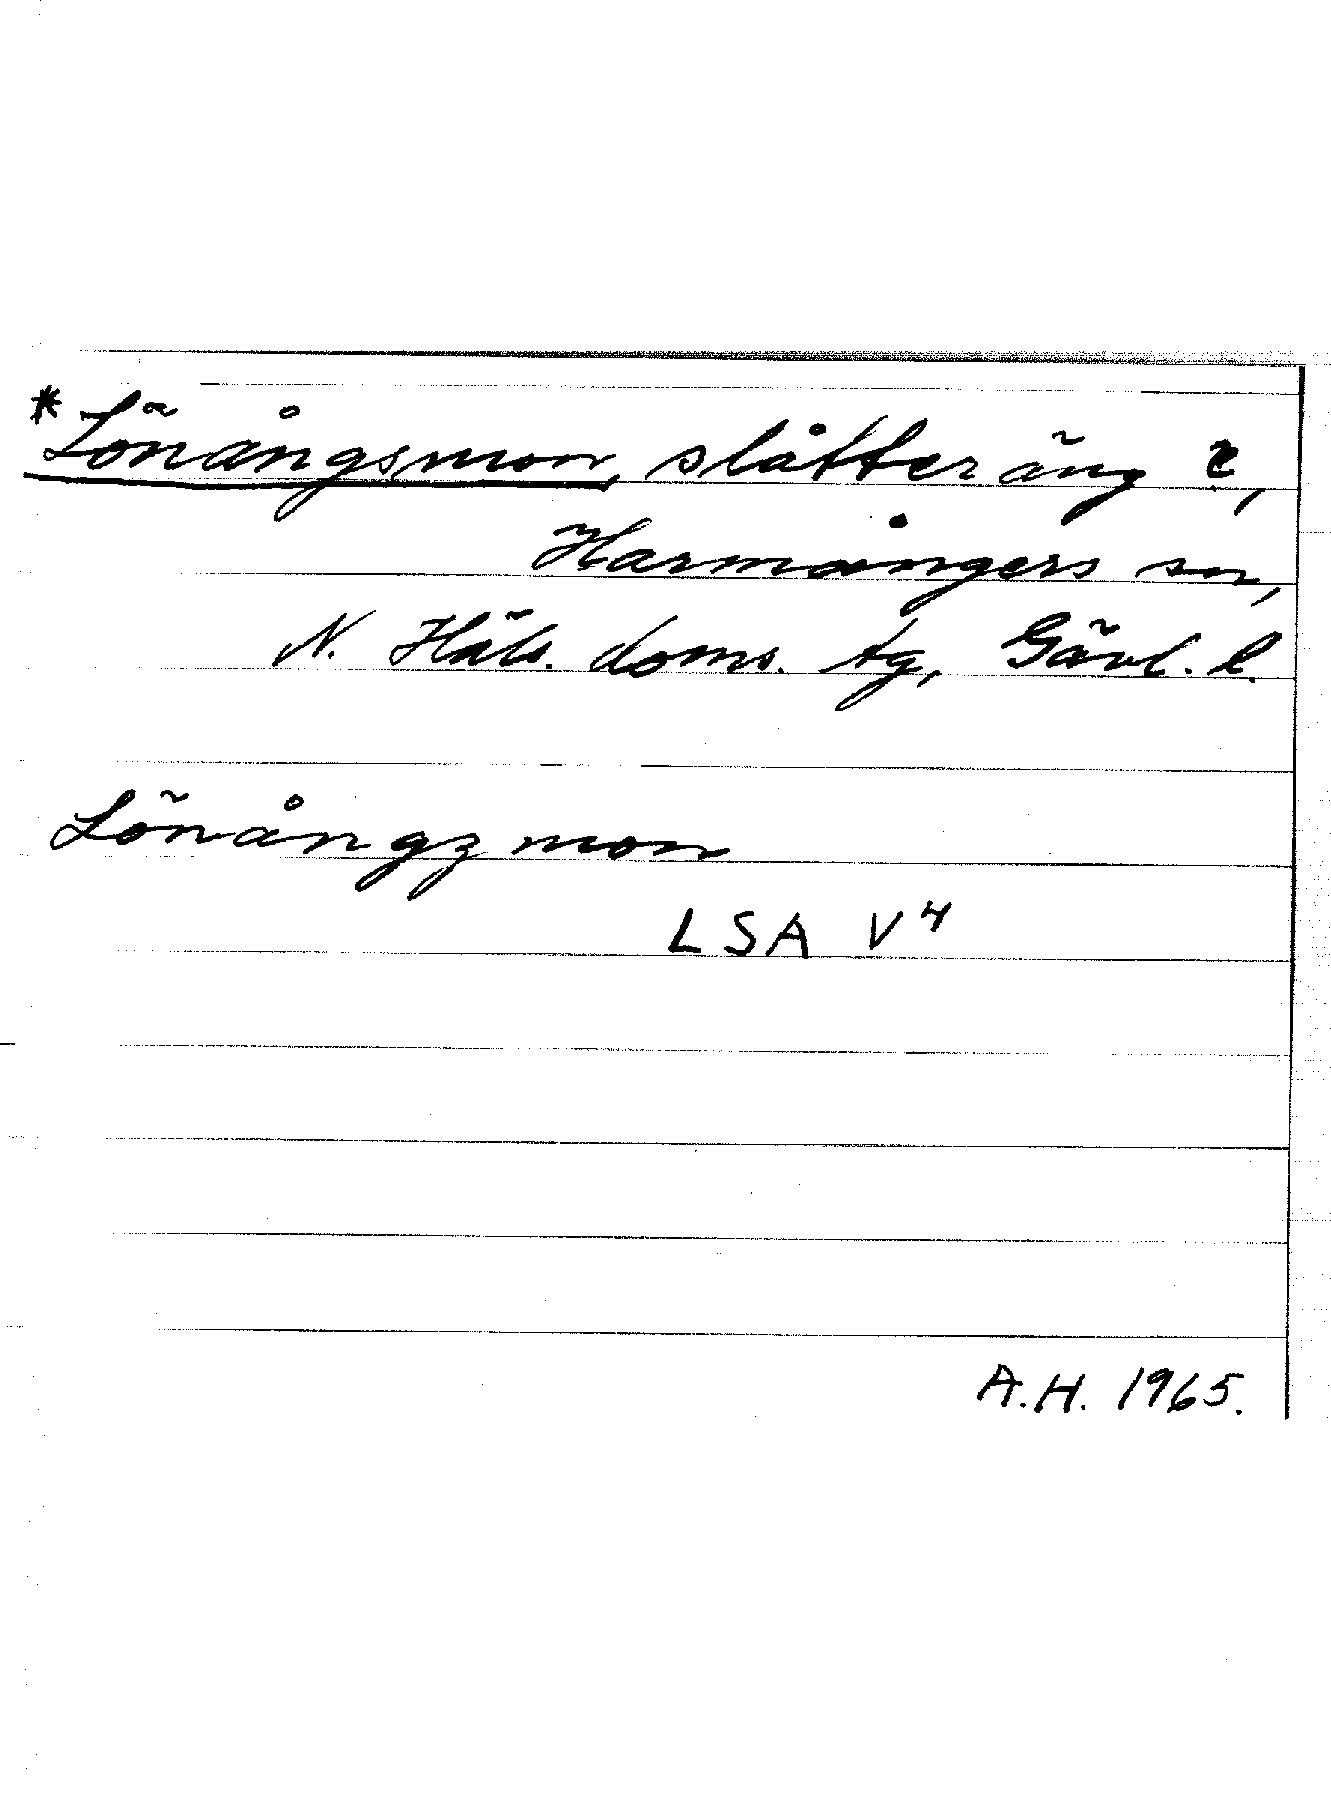 *Lönångsmon, slåtteräng ?,
Harmångers sn,
N. Häls. doms. tg, Gävl. l.
Lönångzmon
LSA V4
A.H. 1965.